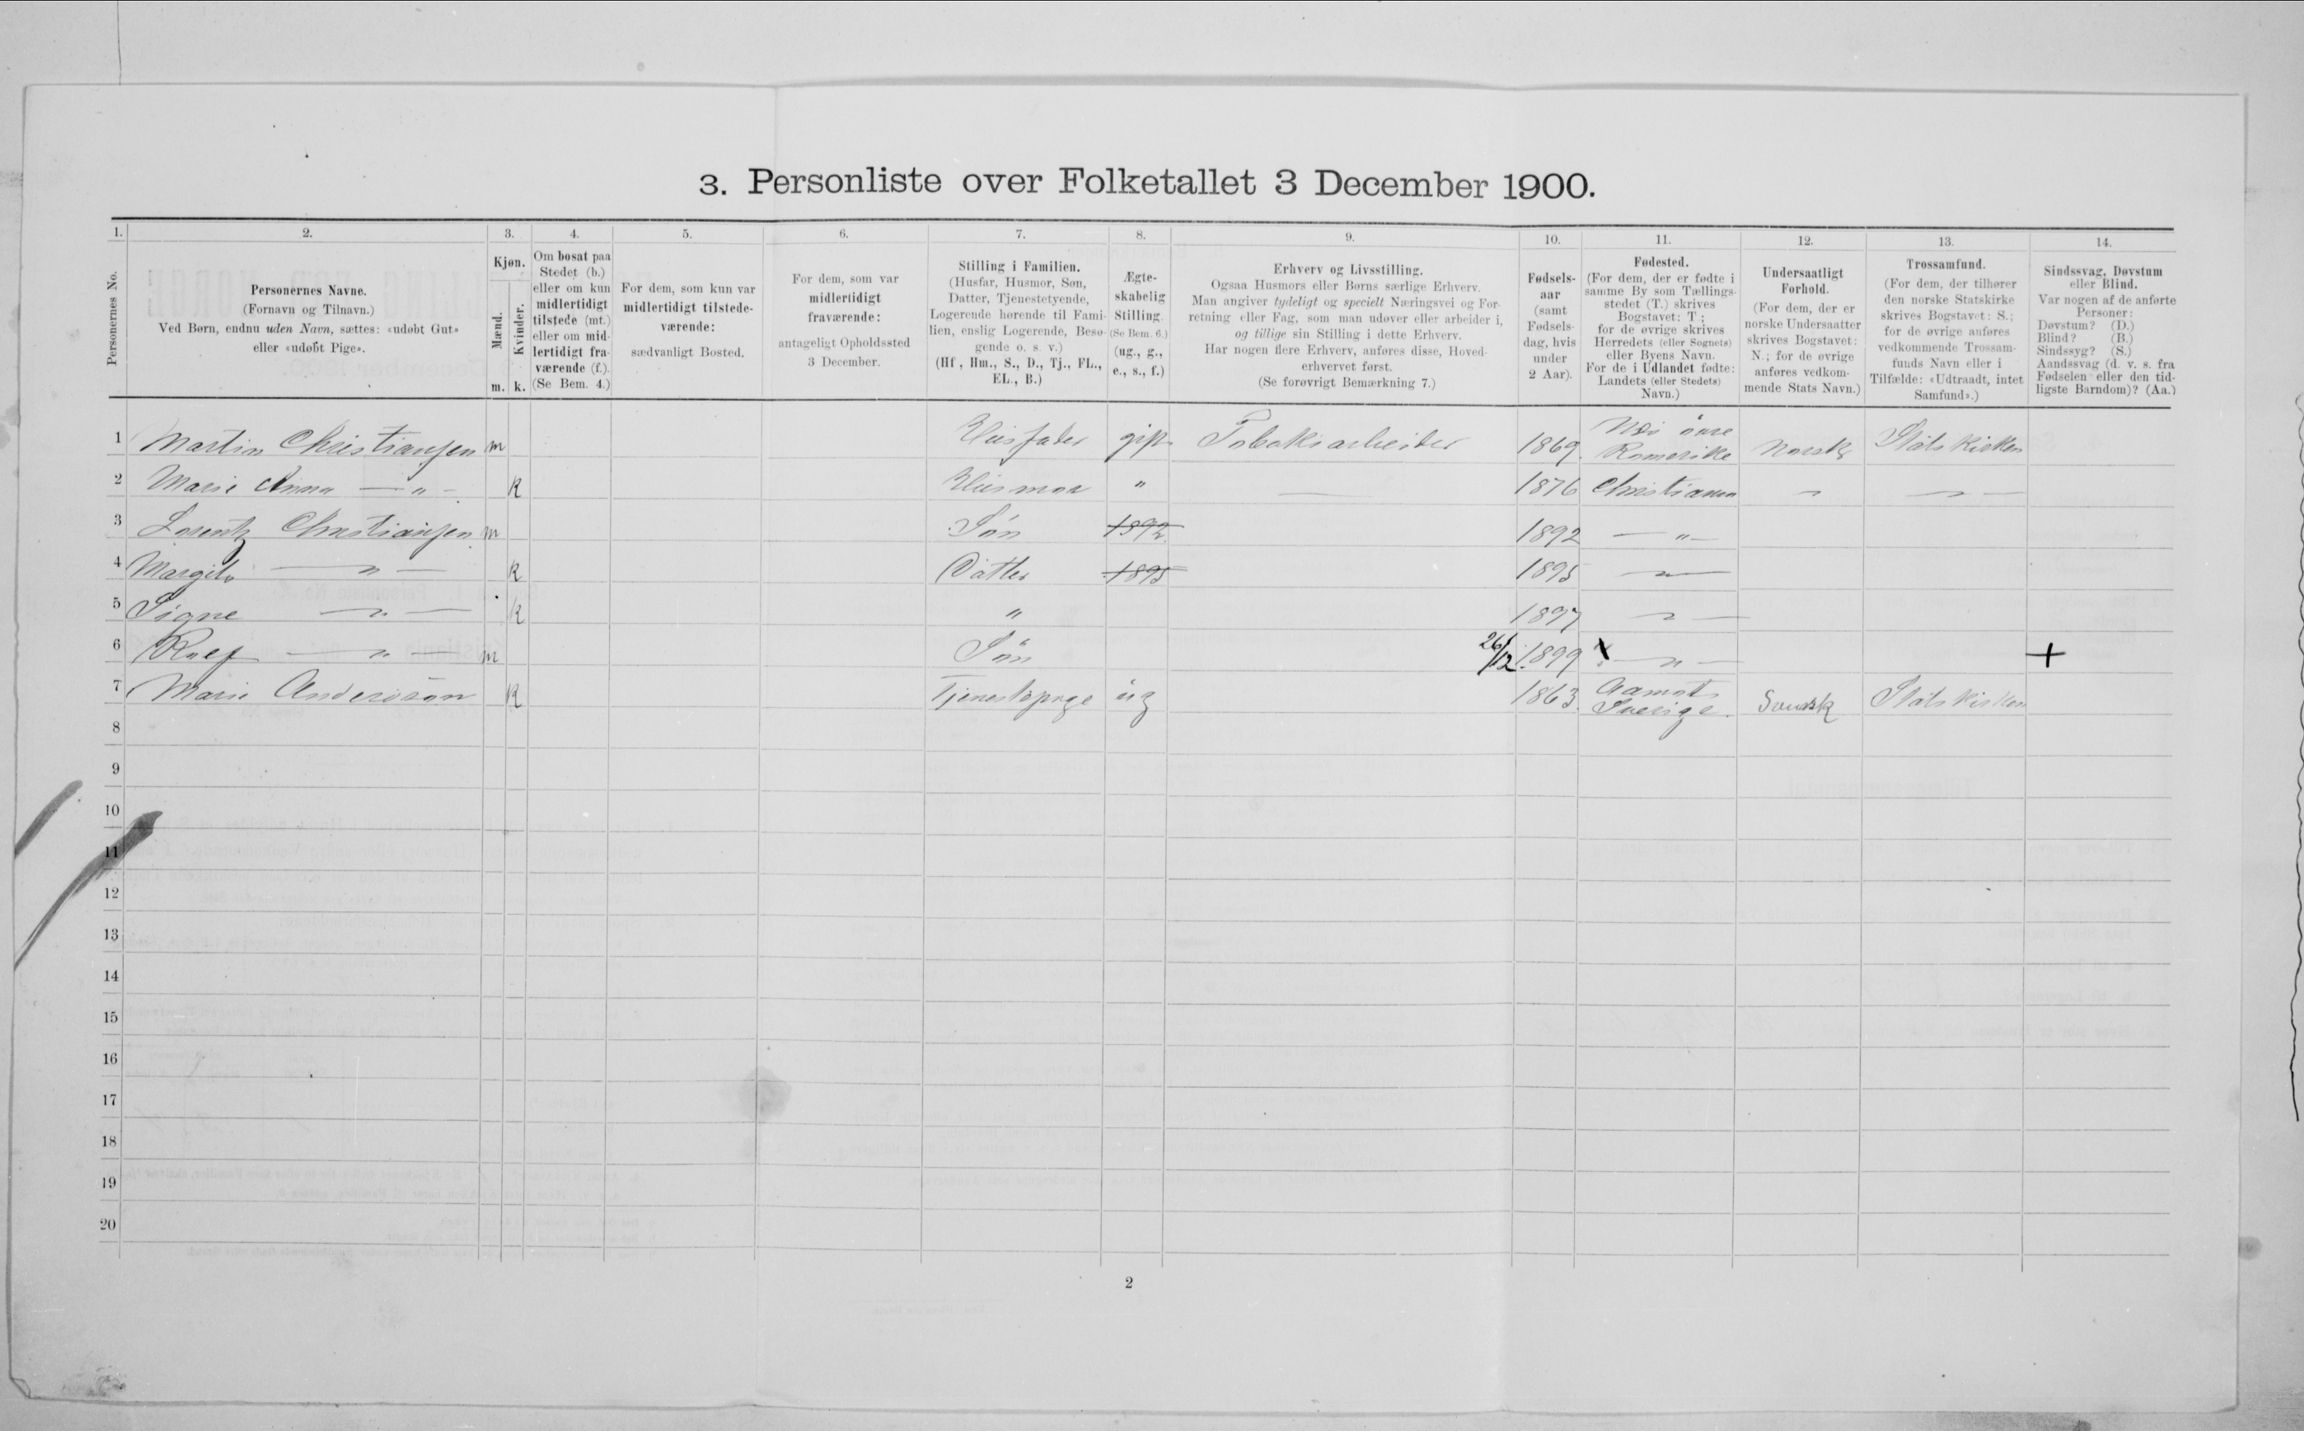 3. Personliste over Folketallet 3 December 1900.
1. 2. 3. 4. 5. 6. 7. 8. 9. 10. 11. 12. 13. 14.
Personernes No.
Personernes Navne.
(Fornavn og Tilnavn.)
Ved Børn, endnu uden Navn, sættes: «udøbt Gut»
eller «udøbt Pige».
Kjøn.
Mænd.
Kvinder.
m. k.
Om bosat paa
Stedet (b.)
eller om kun
midlertidigt
tilstede (mt.)
eller om mid-
lertidigt fra-
værende (f.).
(Se Bem. 4.)
For dem, som kun var
midlertidigt tilstede-
værende:
sædvanligt Bosted.
For dem, som var
midlertidigt
fraværende:
antageligt Opholdssted
3 December.
Stilling i Familien.
(Husfar, Husmor, Søn,
Datter, Tjenestetyende,
Logerende hørende til Fami-
lien, enslig Logerende, Besø-
gende o. s. v.)
(Hf., Hm., S., D., Tj., FL.,
EL., B.)
Ægte-
skabelig
Stilling.
(Se Bem. 6.)
(ug., g.,
e., s., f.)
Erhverv og Livsstilling.
Ogsaa Husmors eller Børns særlige Erhverv.
Man angiver tydeligt og specielt Næringsvei og For-
retning eller Fag, som man udøver eller arbeider i,
og tillige sin Stilling i dette Erhverv.
Har nogen flere Erhverv, anføres disse, Hoved-
erhvervet først.
(Se forøvrigt Bemærkning 7.)
Fødsels-
aar
(samt
Fødsels-
dag, hvis
under
2 Aar).
Fødested.
(For dem, der er fødte i
samme By som Tællings-
stedet (T.) skrives
Bogstavet: T ;
for de øvrige skrives
Herredets (eller Sognets)
eller Byens Navn.
For de i Udlandet fødte:
Landets (eller Stedets)
Navn.)
Undersaatligt
Forhold.
(For dem, der er
norske Undersaatter
skrives Bogstavet:
N.; for de øvrige
anføres vedkom-
mende Stats Navn.)
Trossamfund.
(For dem, der tilhører
den norske Statskirke
skrives Bogstavet: S.;
for de øvrige anføres
vedkommende Trossam-
funds Navn eller i
Tilfælde: «Udtraadt, intet
Samfund».)
Sindssvag, Døvstum
eller Blind.
Var nogen af de anførte
Personer:
Døvstum? (D.)
Blind? (B.)
Sindssyg? (S.)
Aandssvag (d. v. s. fra
Fødselen eller den tid-
ligste Barndom)? (Aa.)
1 Martin Christiansen m Husfader gift Tobaksarbeider 1869. Romerike Norsk Statskirken
2 Marie Anna — " — k Husmor " — 1876 Christiania — —
3 Lorentz Christiansen m Søn 1892 1892 — " —
4 Margit — " — k Datter 1895 1895 — " —
5 Signe — " — k " 1897 — " —
6 Rolf — " — m Søn 26/12 1899 — " — +
7 Marie Andersson k Tjenestepige ug 1863. Sverige. Svensk Statskirken
8
9
10
11
12
13
14
15
16
17
18
19
20
2